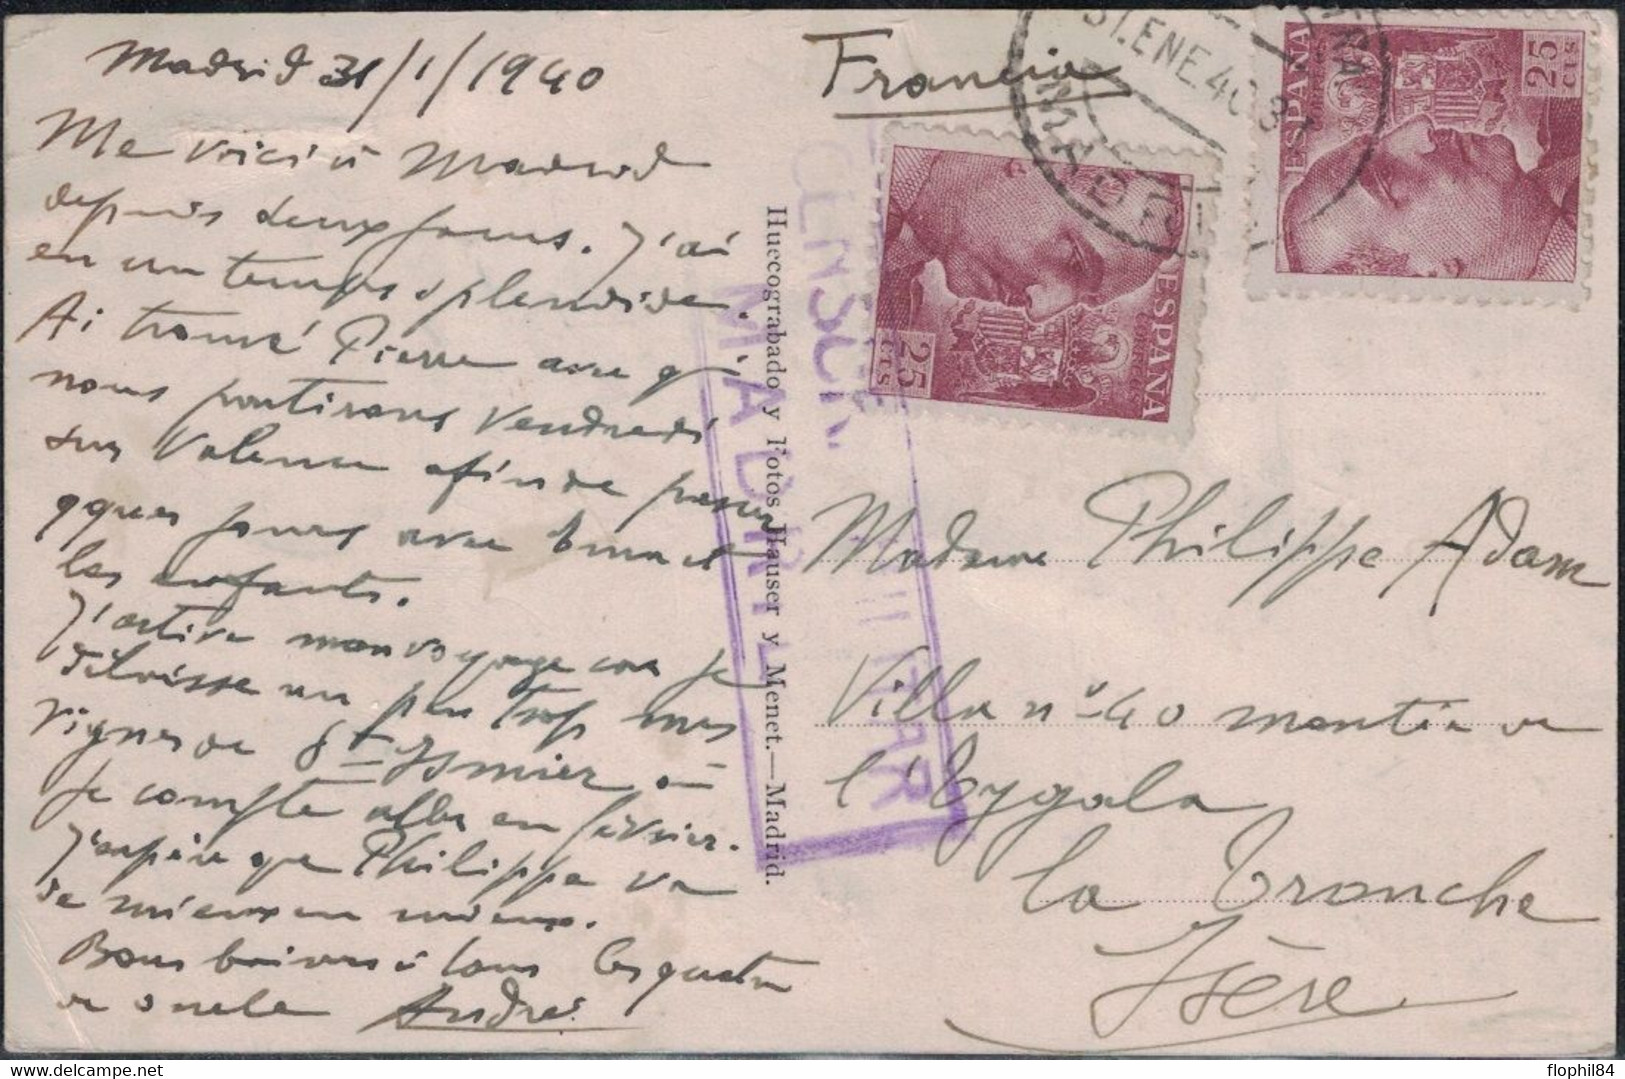 Madrid 31/1/1940
Me voici à Madrid
depuis deux jours. J'ai
eu un temps splendide.
Ai trouvé Pierre avec qui
nous partirons Vendredi
sur Valence afin de passer
qques jours avec et
les enfants.
J'active mon voyage car je
un peu trop mes
vignes de St Ismier où
je compte aller en février.
J'espère que Philippe va
de mieux en mieux.
Bons baisers à tous les quatre
de André
Francia
Madame Philippe Adam
Villa nº 40 montée de
l'Eygala
La Tronche
Isère
Huecograbado y Fotos Hauser y Menet.—Madrid.
CENSURA MILITAR
MADRID
31.ENE.40
MADRID
ESPAÑA
CORREOS
25
CTS
ESPAÑA
25
CTS
flophil84